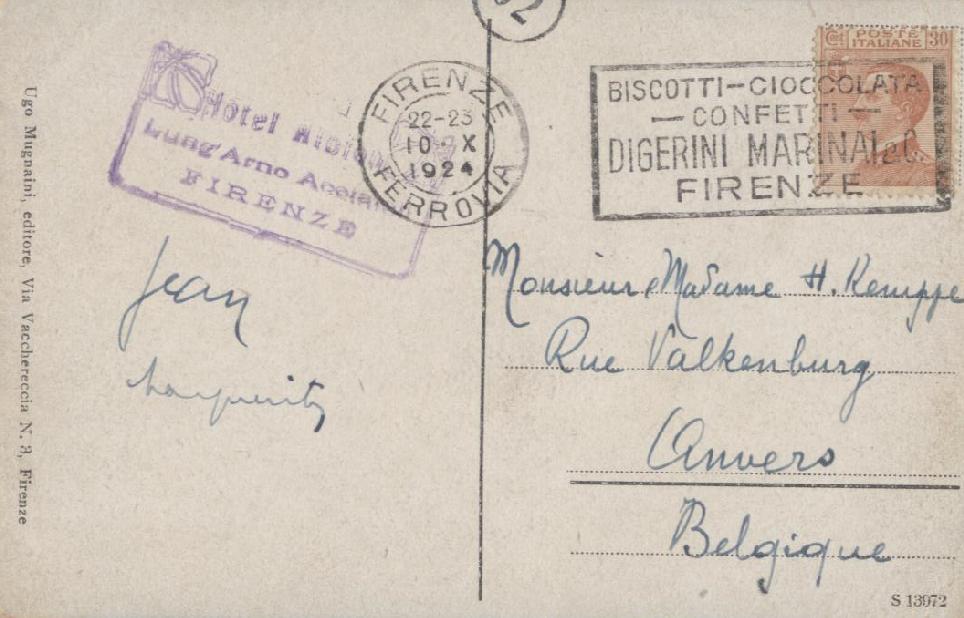 52
POSTE
ITALIANE
Cent 30
FIRENZE
22-23
10 X
1924
FERROVIA
BISCOTTI-CIOCCOLATA
-CONFETTI-
DIGERINI MARINAI&C
FIRENZE
Hotel
Lung'Arno
FIRENZE
Jean
Marguerite
Monsieur Madame H. Kemppe
Rue Valkenburg
Anvers
Belgique
Ugo Mugnaini, editore, Via Vacchereccia N. 3, Firenze
S 13972